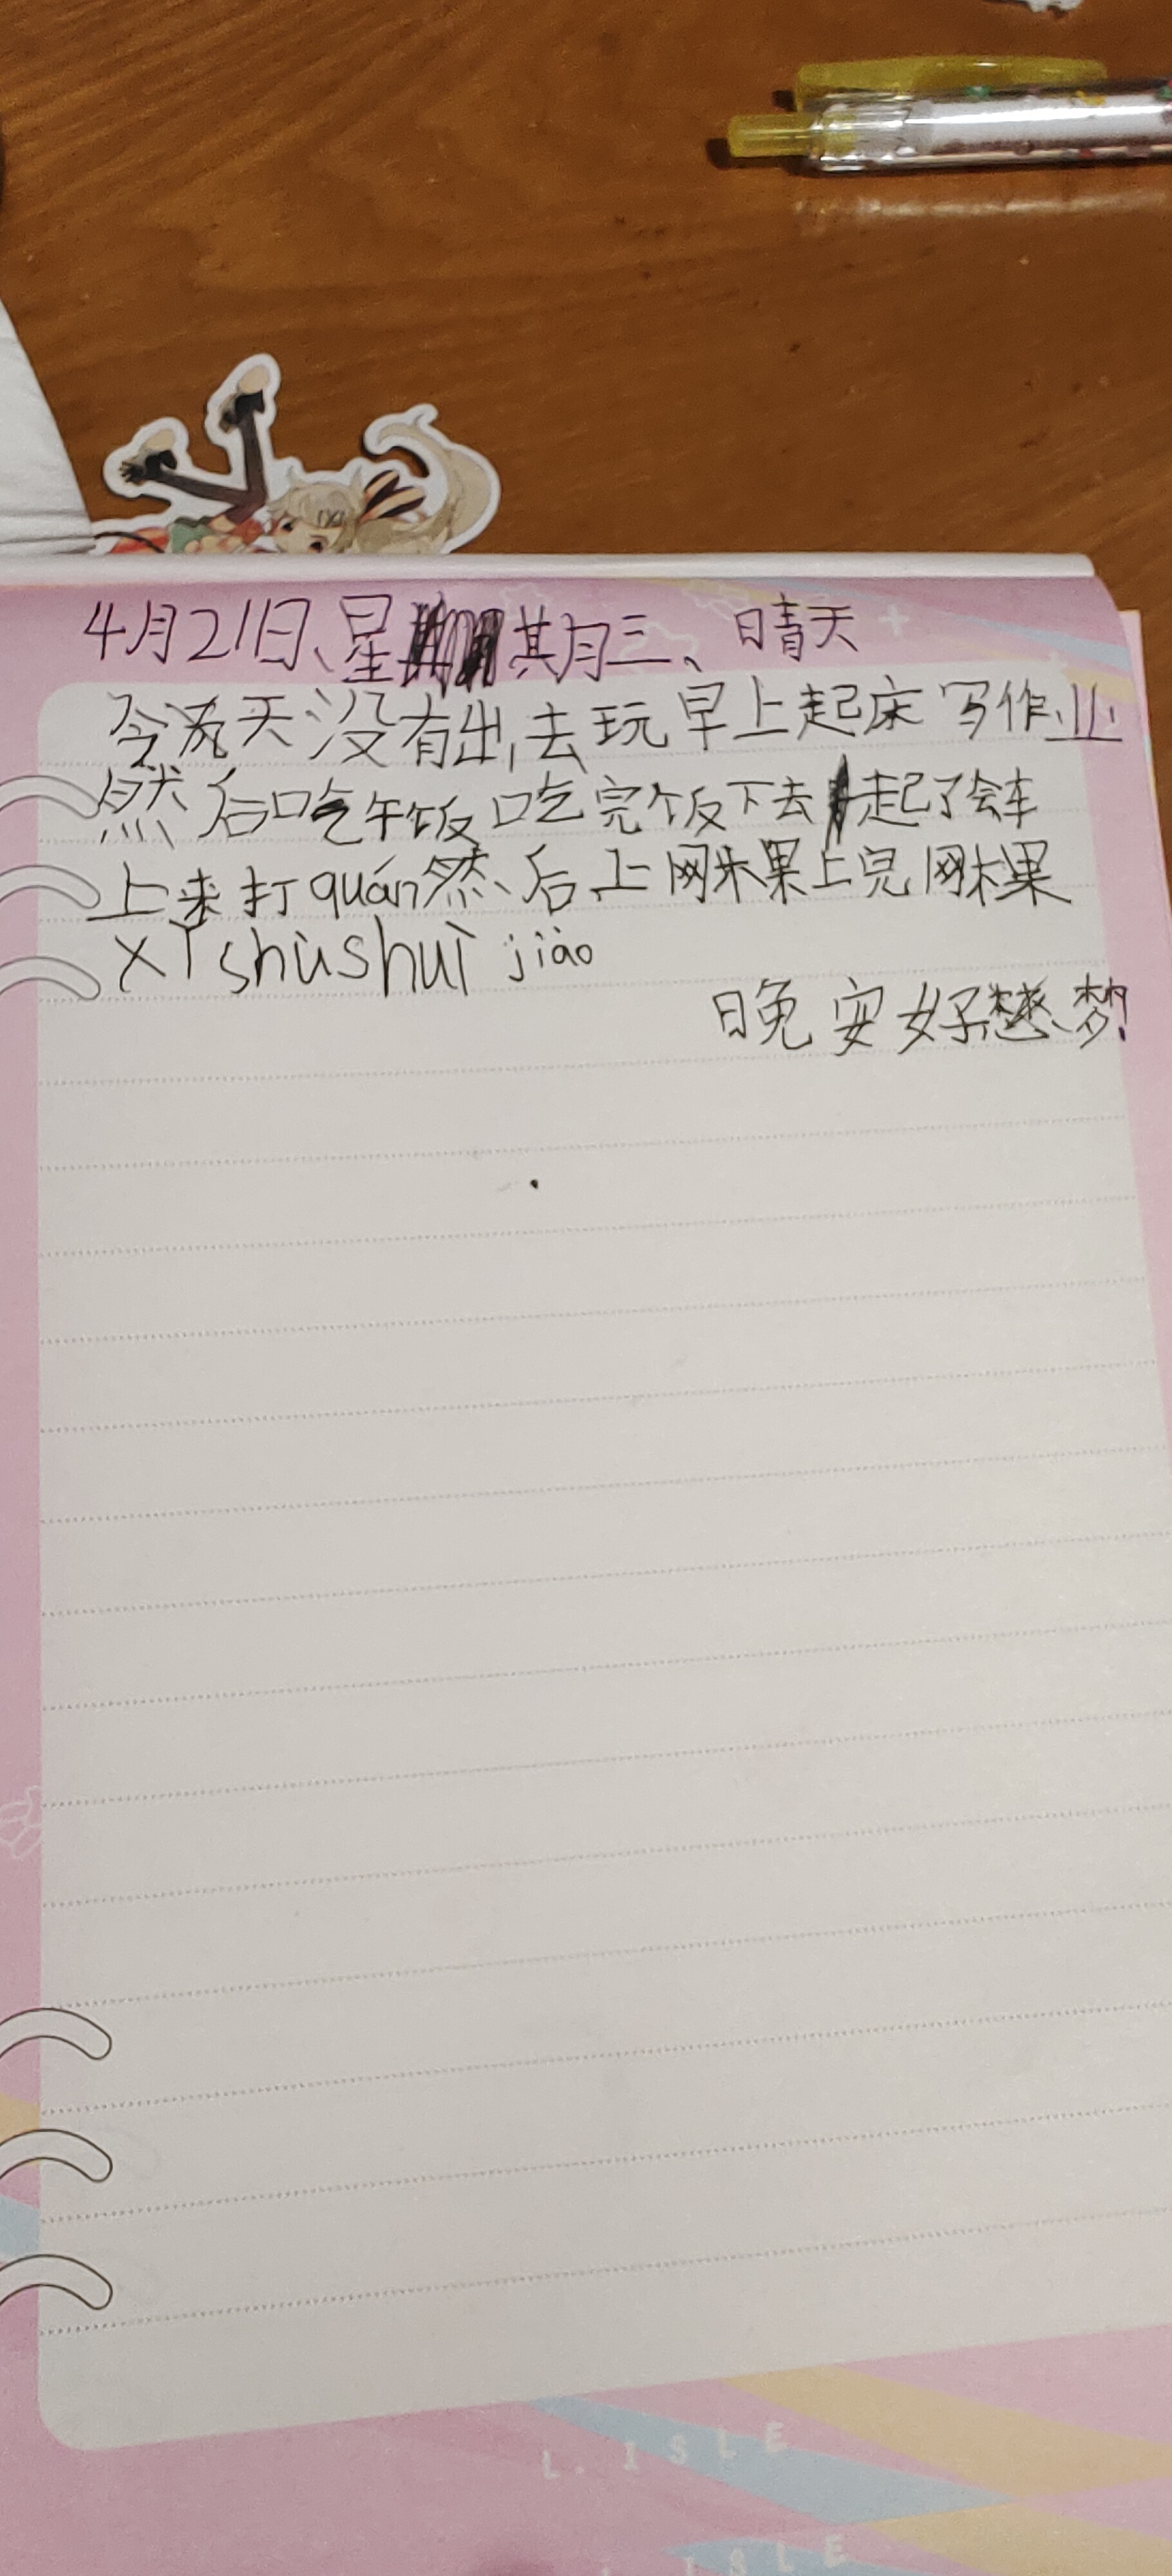 4月21日、星期三、晴天
今天没有出去玩早上起床写作业
然后吃午饭吃完饭下去起了会车
上来打quán然后上网课上完网课
xǐ shù shuì jiào
晚安好梦!
L. ISLE
ISLE